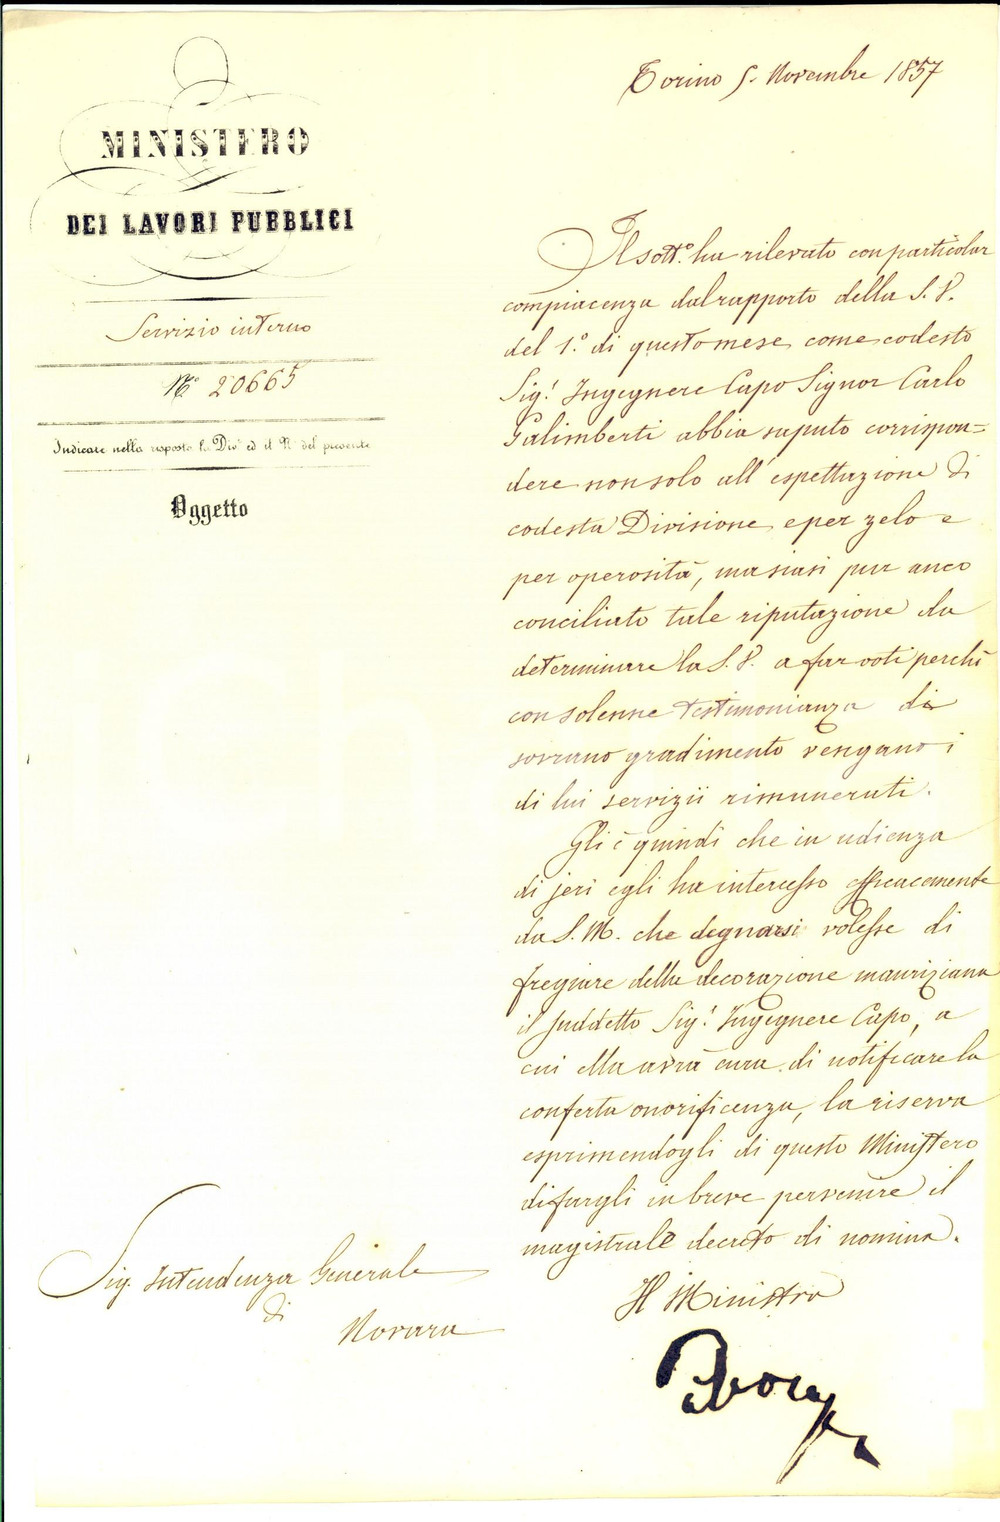 Torino 5. Novembre 1857
MINISTERO
DEI LAVORI PUBBLICI
Servizio interno
N.° 20665
Indicare nella risposta la Div.e ed il N.° del presente
Oggetto
Il sott.° ha rilevato con particolar
compiacenza dal rapporto della S. V.
del 1.° di questo mese come codesto
Sig.r Ingegnere Capo Signor Carlo
Galimberti abbia saputo corrispon=
dere non solo all'espettazione di
codesta Divisione e per zelo e
per operosità, ma siasi pur anco
conciliato tale riputazione da
determinare la S. V. a far voti perchè
con solenne testimonianza di
sovrano gradimento vengano i
di lui servizii rimunerati.
Gli è quindi che in udienza
di jeri egli ha intercesso efficacemente
da S. M. che degnarsi volesse di
fregiare della decorazione mauriziana
il suddetto Sig.r Ingegnere Capo, a
cui Ella avrà cura di notificare la
conferta onorificenza, la riserva
esprimendogli di questo Ministero
di fargli in breve pervenire il
magistrale decreto di nomina.
Il Ministro
Sig. Intendenza Generale
di
Novara